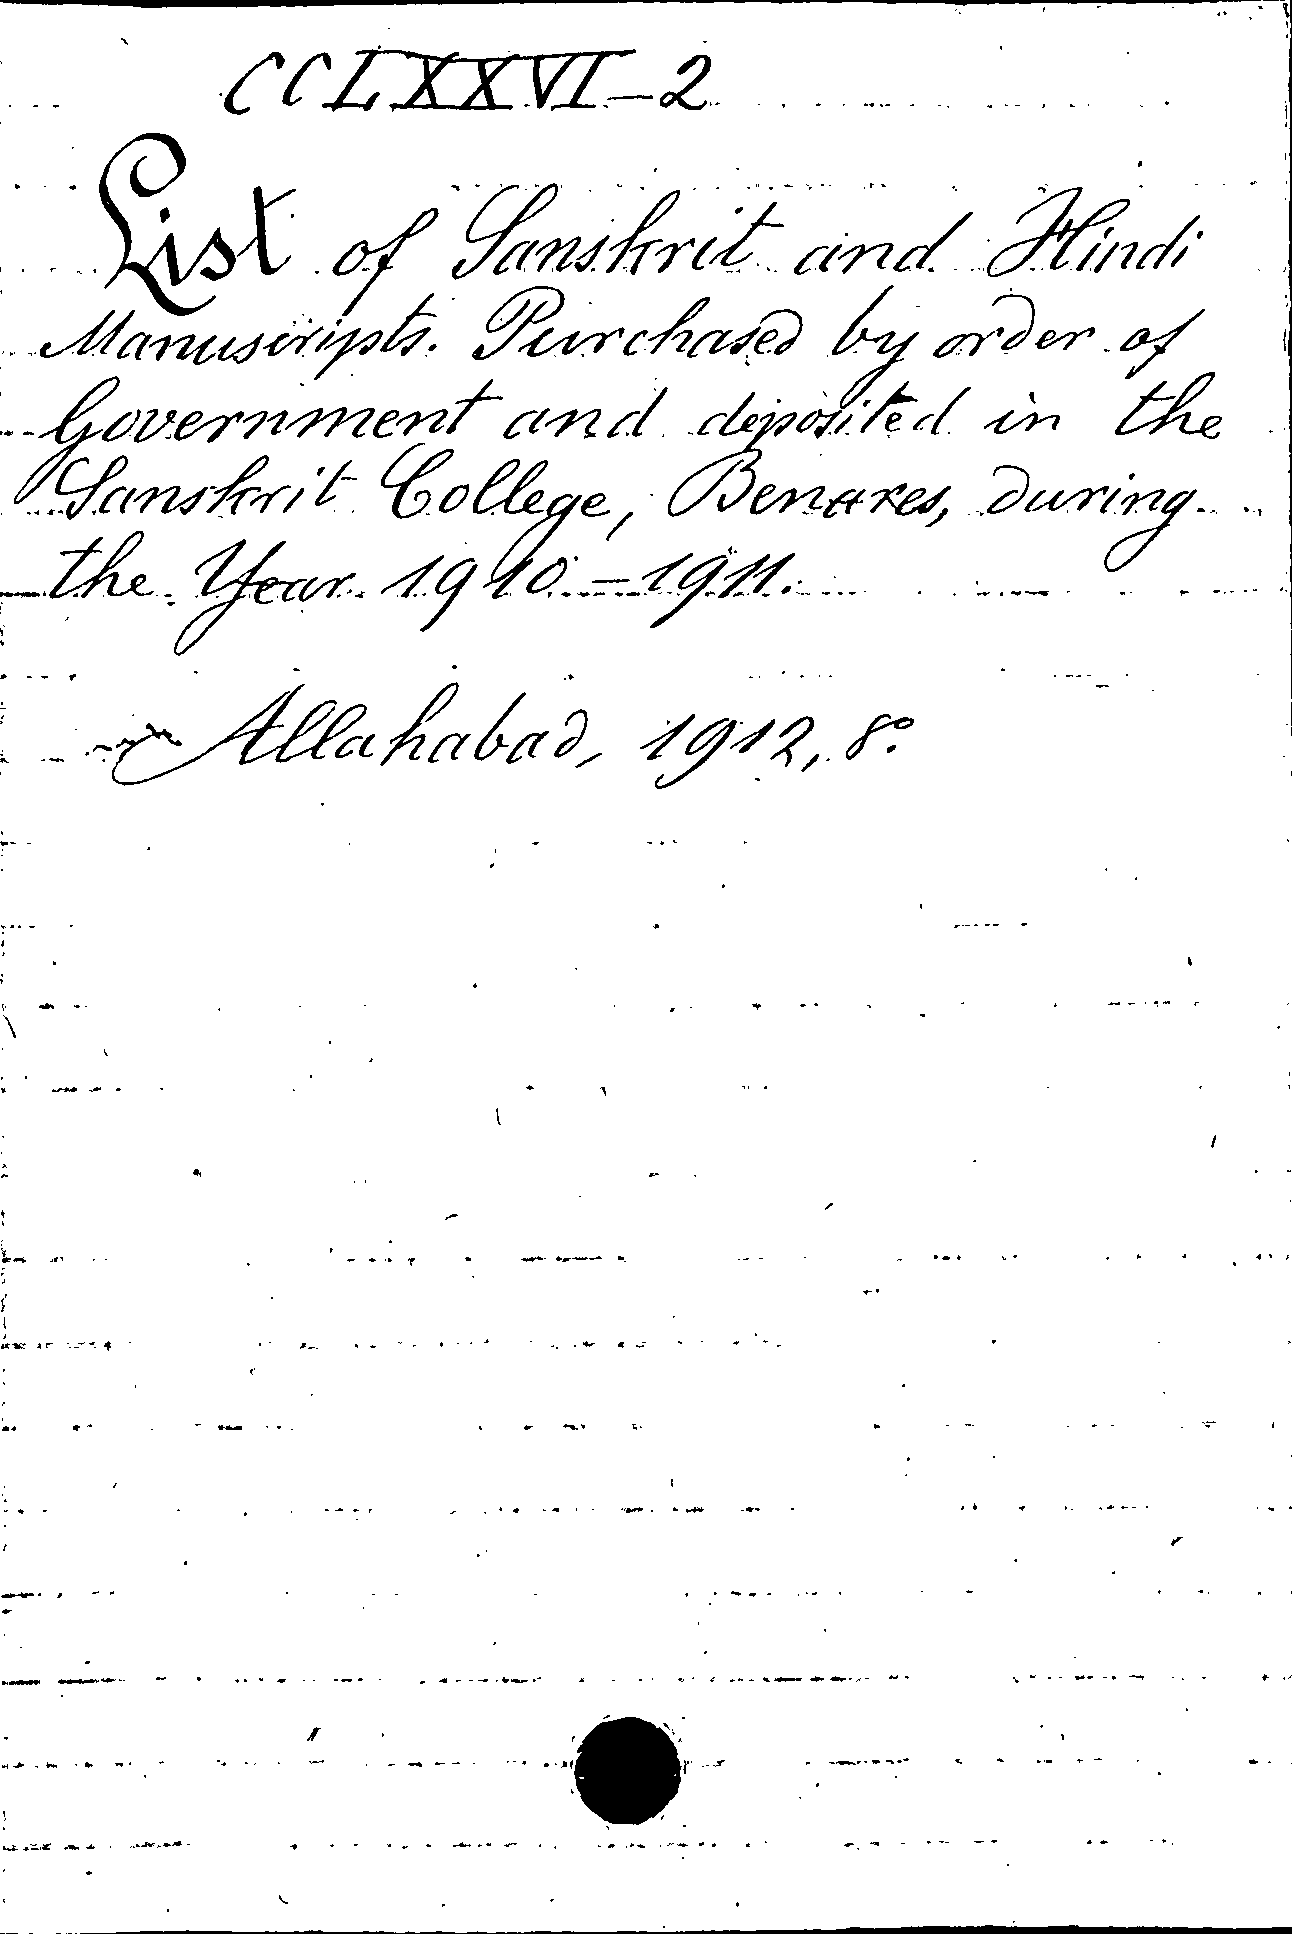 CCLXXVI-2
List of Sanskrit and Hindi
Manuscripts. Purchased by order of
Government and deposited in the
Sanskrit College, Benares, during
the Year 1910-1911.
Allahabad, 1912, 8°.